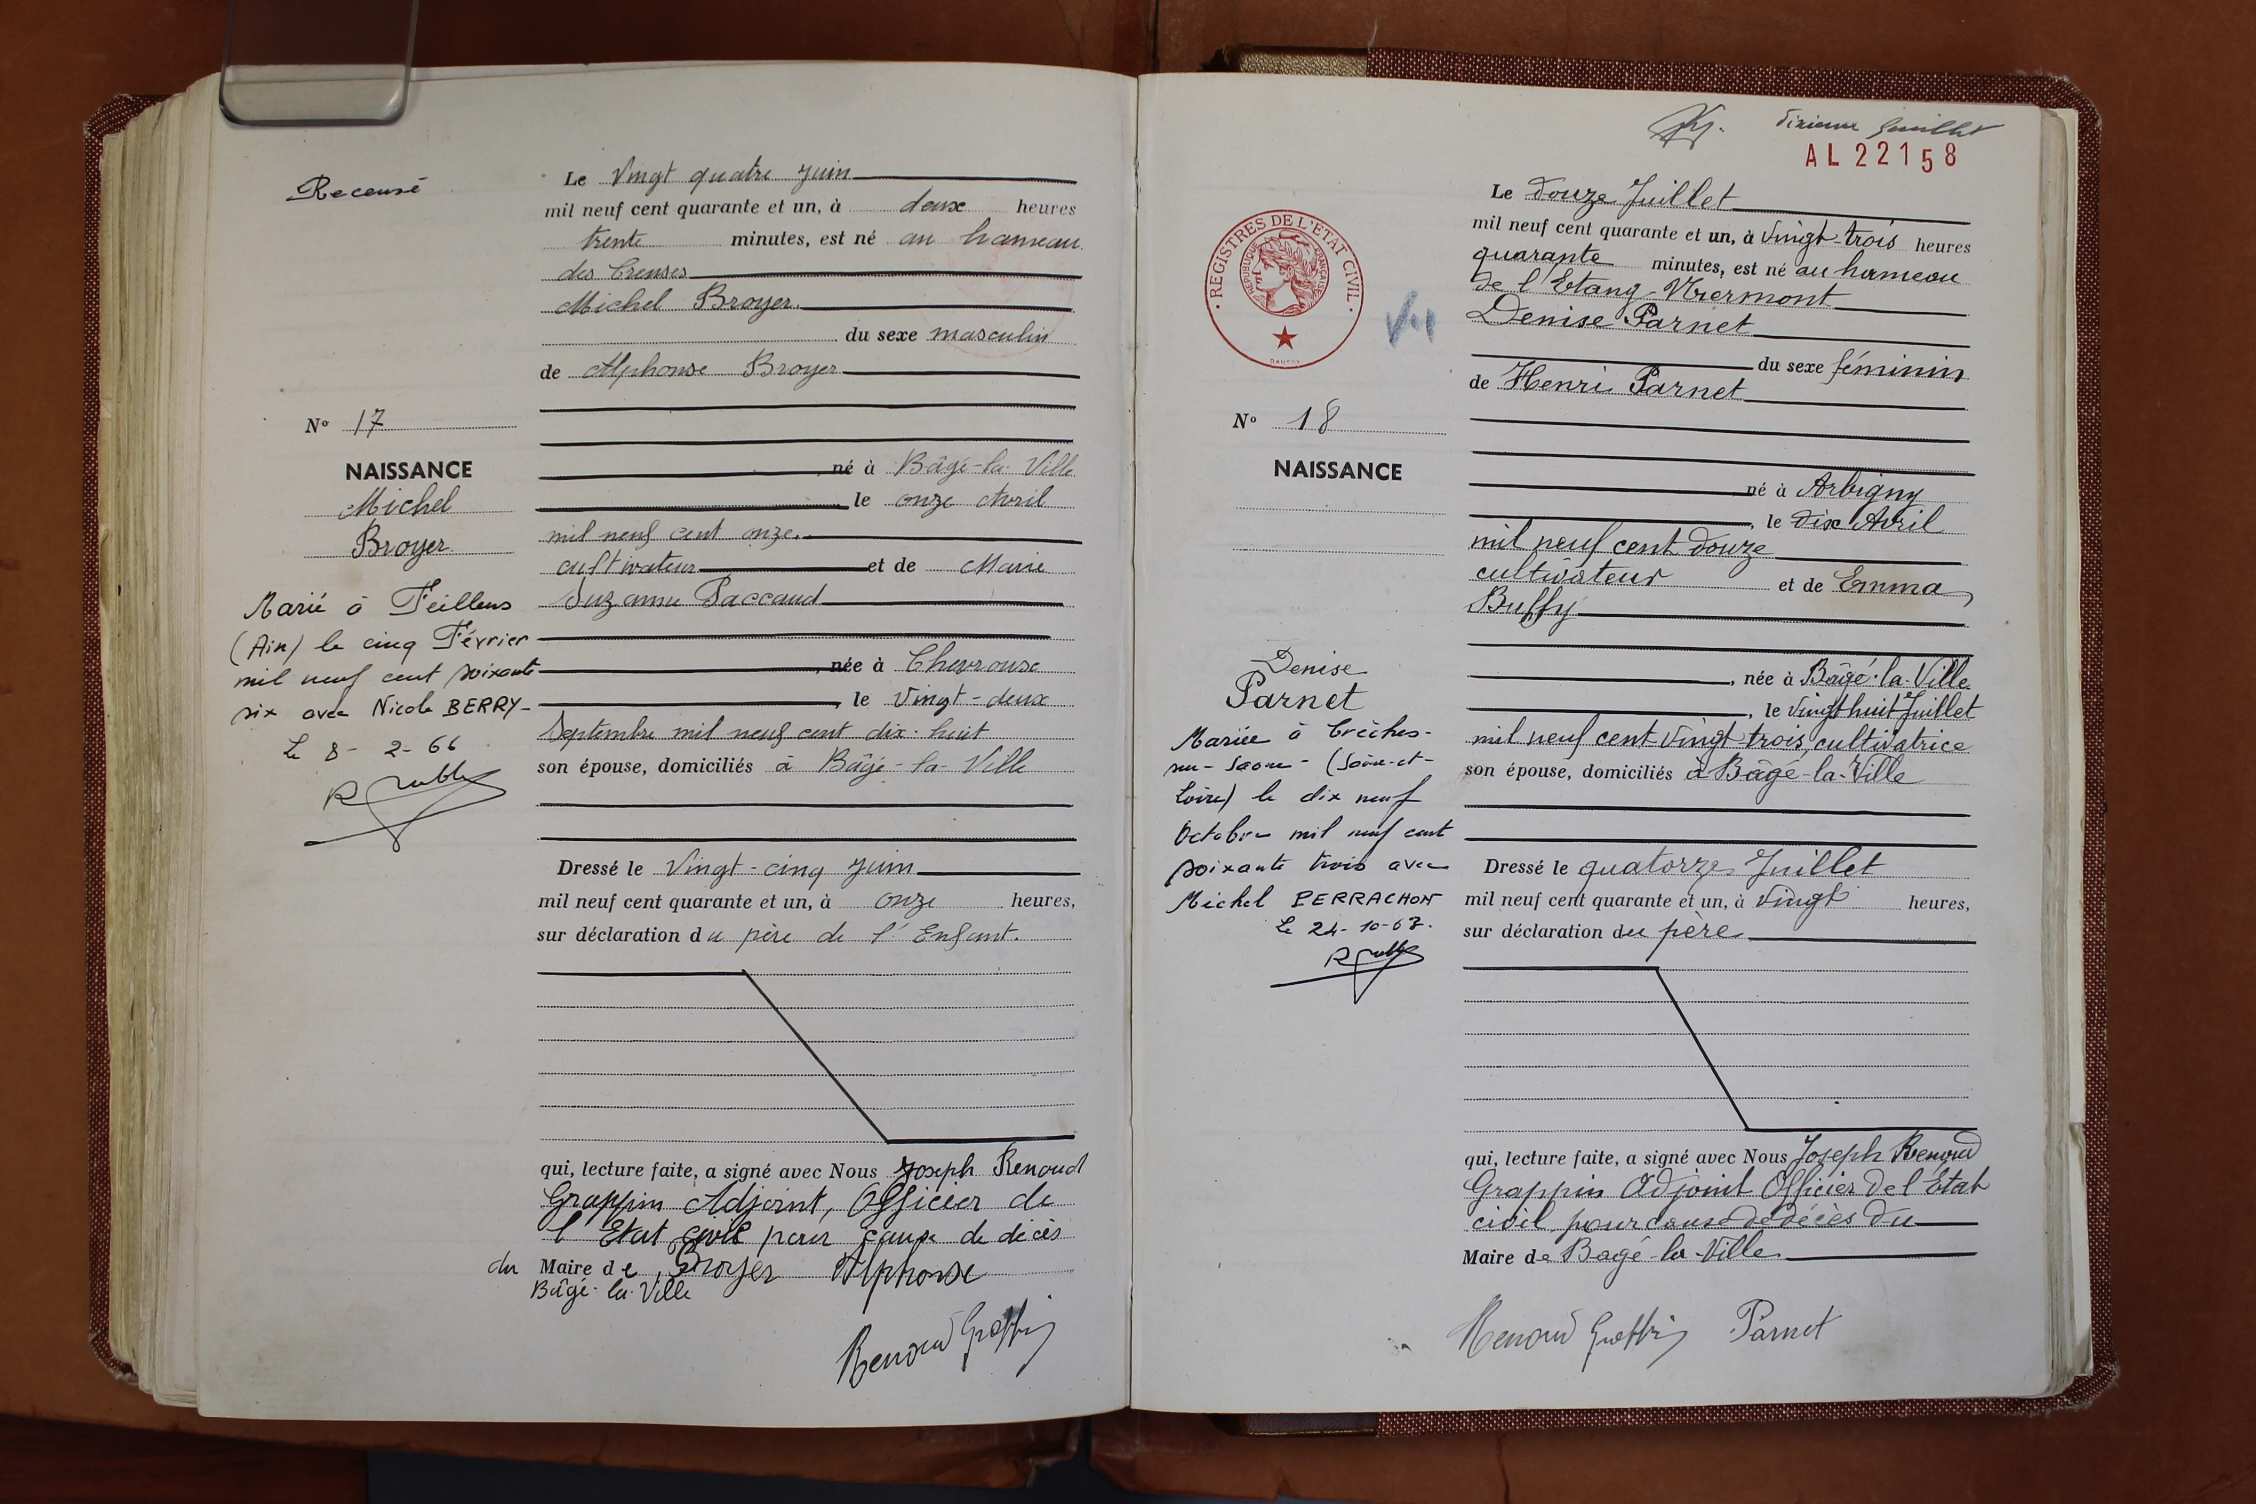 Recensé
Le Vingt quatre Juin
mil neuf cent quarante et un, à deux heures
trente minutes, est né au hameau
des Creuses
Michel Broyer
du sexe masculin
de Alphonse Broyer
né à Bâgé-la-Ville
le onze Avril
mil neuf cent onze.
cultivateur et de Marie
Suzanne Paccaud
, née à Chevroux
, le Vingt-deux
Septembre mil neuf cent dix-huit
son épouse, domiciliés à Bâgé-la-Ville
Dressé le Vingt-cinq Juin
mil neuf cent quarante et un, à onze heures,
sur déclaration du père de l'Enfant.
qui, lecture faite, a signé avec Nous Joseph Renoud
Grappin Adjoint, Officier de
l'Etat civil pour cause de décès
du Maire de Broyer Alphonse
Bâgé-la-Ville
Renoud Grappin
N° 17
NAISSANCE
Michel
Broyer
Marié à Feillens
(Ain) le cinq Février
mil neuf cent soixante
six avec Nicole BERRY-
Le 8-2-66
Dixième Juillet
AL 22158
REGISTRES DE L'ETAT CIVIL
REPUBLIQUE FRANÇAISE
Le Douze Juillet
mil neuf cent quarante et un, à Vingt-trois heures
quarante minutes, est né au hameau
de l'Etang-Vriermont
Denise Parnet
du sexe féminin
de Henri Parnet
né à Arbigny
, le Dix Avril
mil neuf cent Douze
cultivateur et de Emma
Buffy
, née à Bâgé-la-Ville
, le Vingt huit Juillet
mil neuf cent Vingt trois, cultivatrice
son épouse, domiciliés à Bâgé-la-Ville
Dressé le quatorze Juillet
mil neuf cent quarante et un, à Vingt heures,
sur déclaration du père
qui, lecture faite, a signé avec Nous Joseph Renoud
Grappin Adjoint Officier de l'Etat
civil pour cause de décès du
Maire de Bagé-la-Ville
Renoud Grappin Parnet
N° 18
NAISSANCE
Denise
Parnet
Mariée à Crèches-
sur-Saône-(Saône-et-
Loire) le dix neuf
Octobre mil neuf cent
soixante trois avec
Michel PERRACHON
Le 24-10-63.